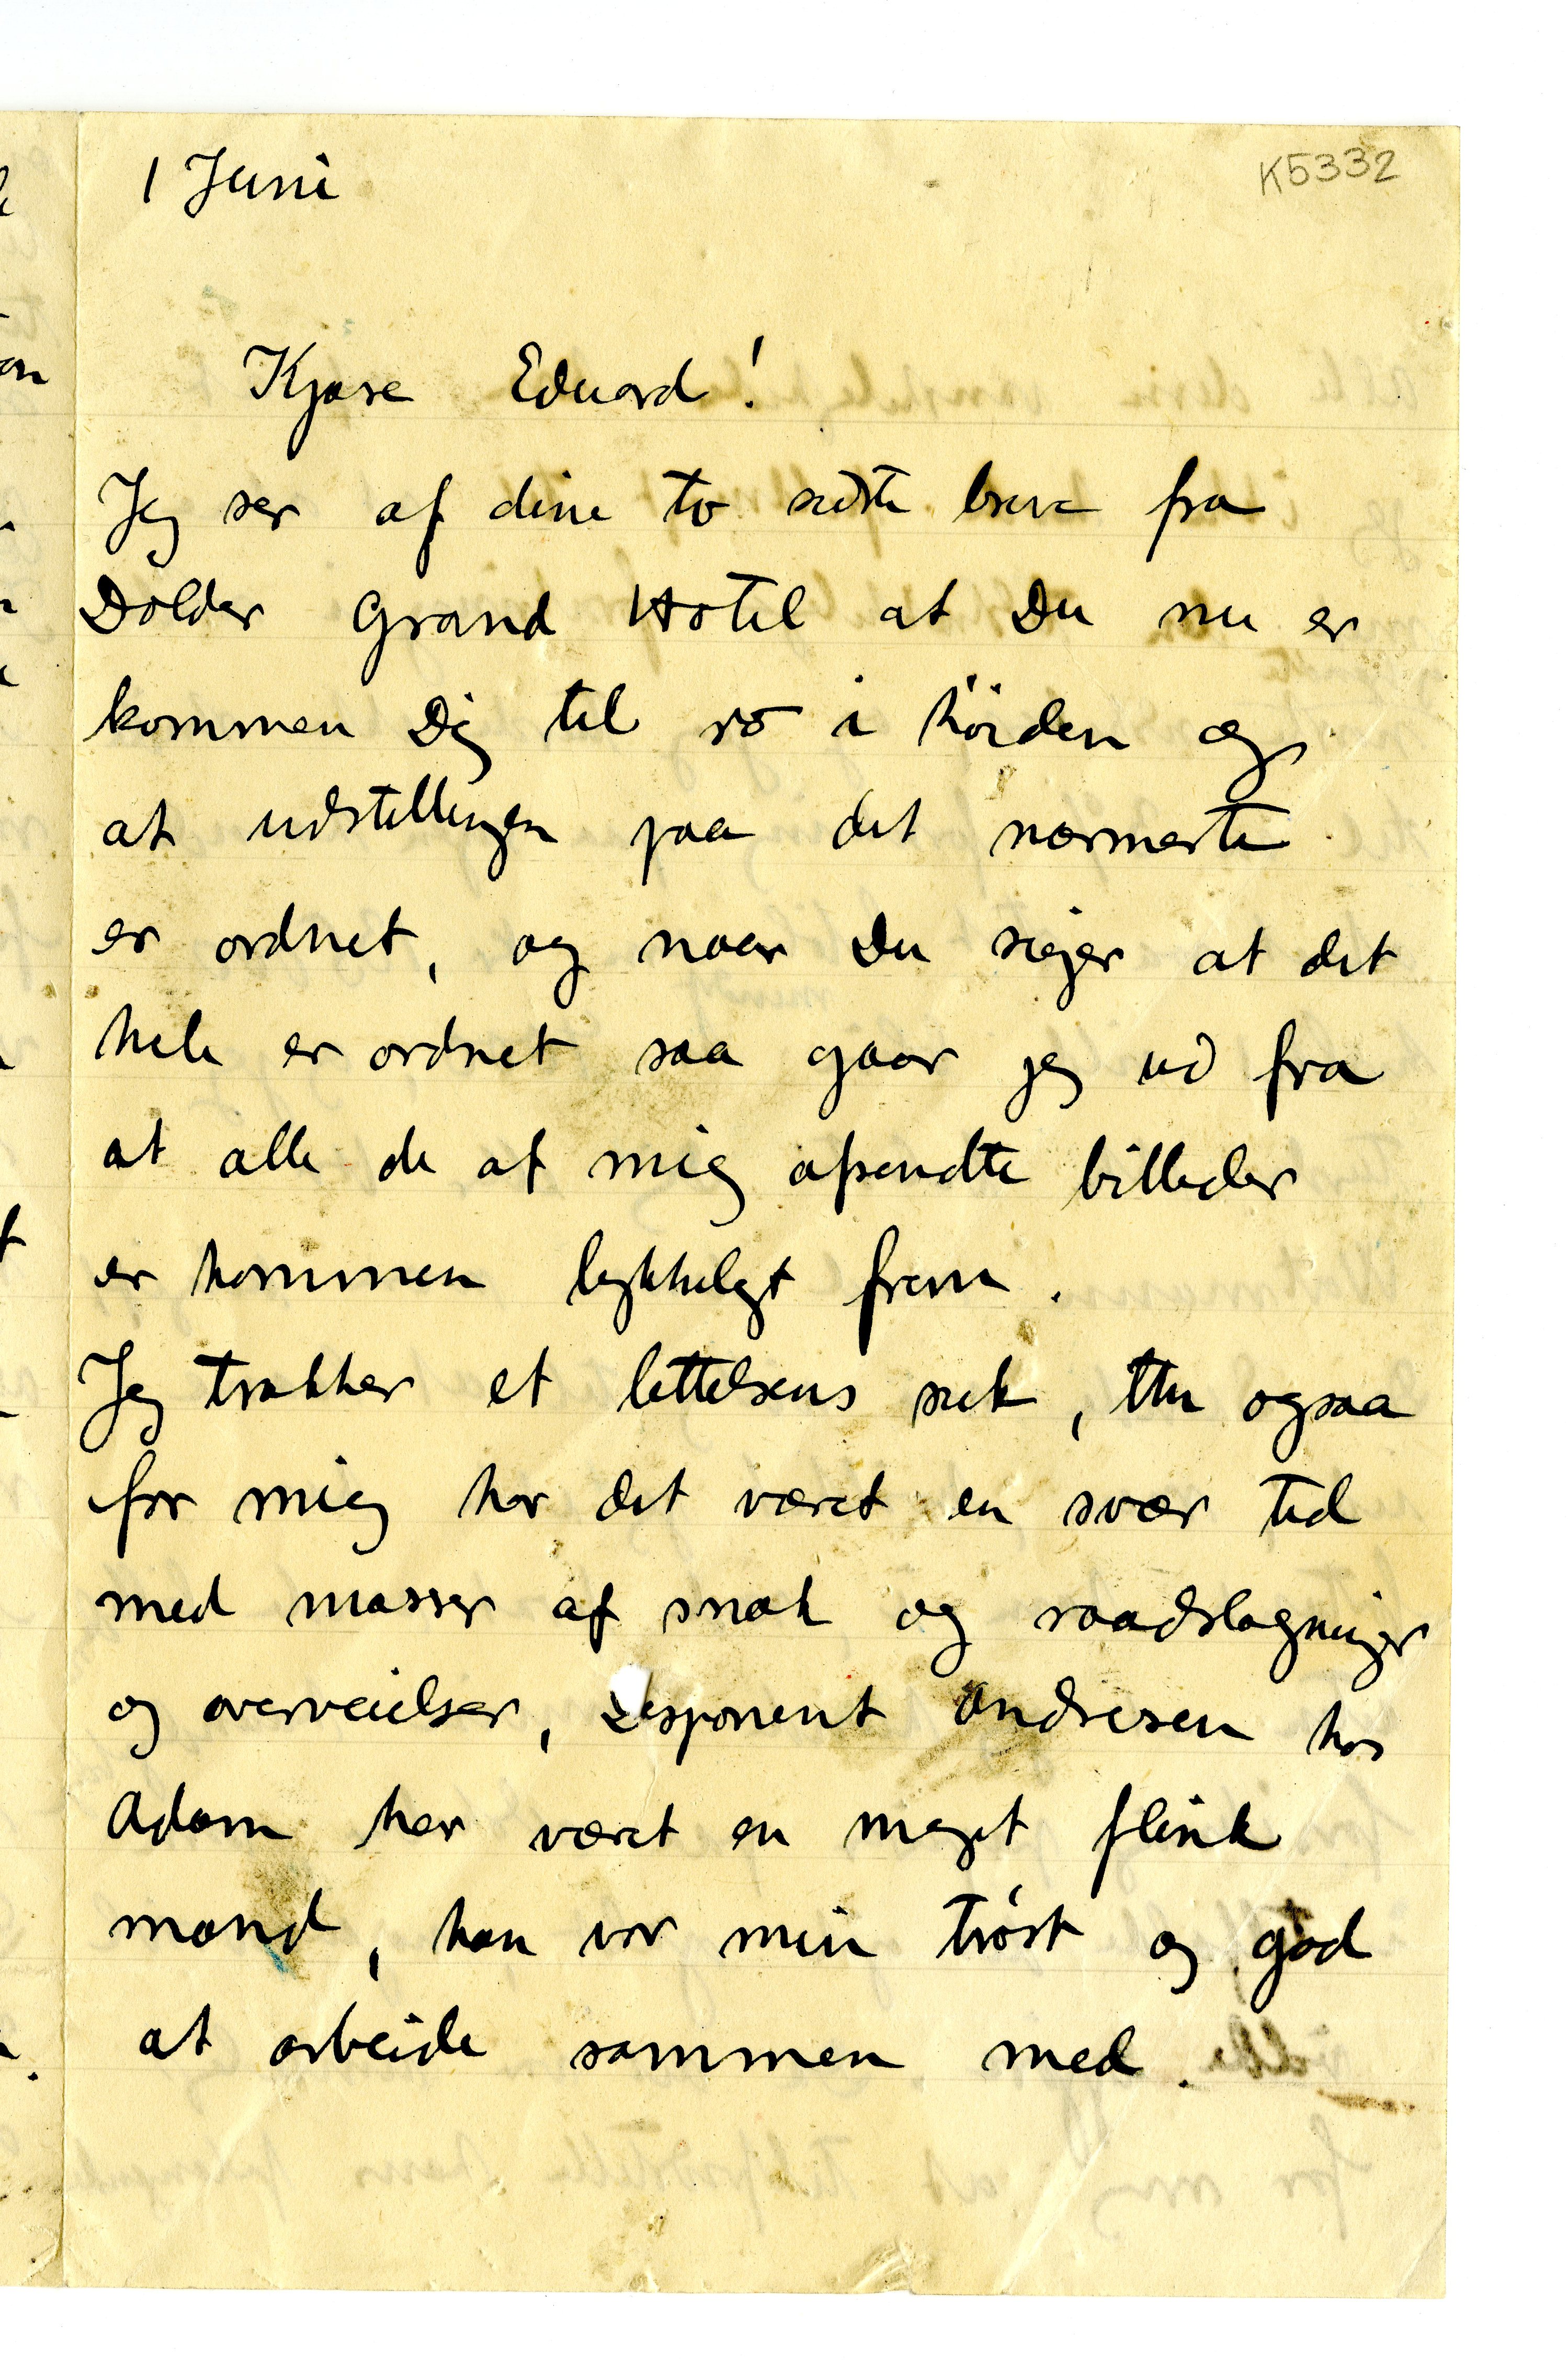 1 Juni
K5332
Kjære Edvard!
Jeg ser af dine to sidste breve fra
Dolder Grand Hotel at Du nu er
kommen Dig til ro i höiden og
at udstillingen paa det nærmeste
er ordnet, og naar Du siger at det
hele er ordnet saa gaar jeg ud fra
at alle de af mig afsendte billeder
er kommen lykkeligt frem.
Jeg trækker et lettelsens suk, thi ogsaa
for mig har det været en svær tid
med masser af snak og raadslagninger
og overveielser, Disponent Andresen hos
Adam har været en meget flink
mand, han var min tröst og god
at arbeide sammen med.